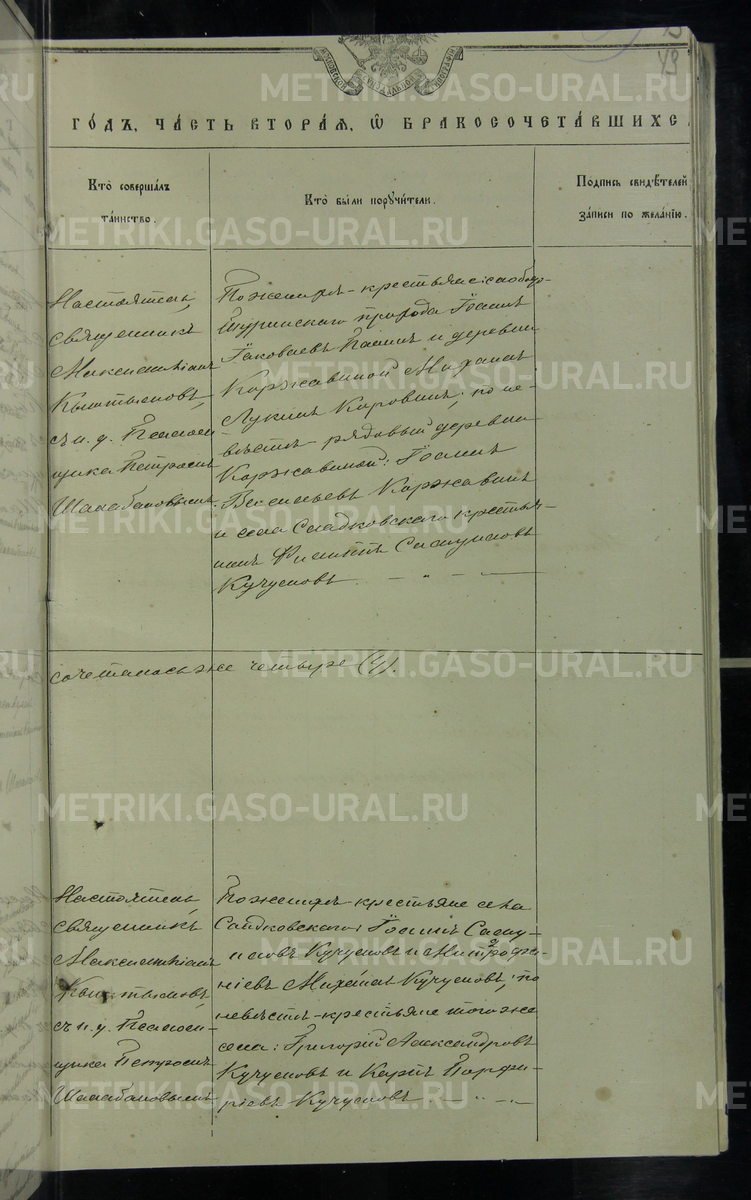 49
METRIKI.GASO-URAL.RU
го́дъ, ча́сть втора́я, ѡ҆ бракосочета́вшихс
Кто̀ соверша́лъ
та́инство.
Кто̀ бы́ли поручи́тели.
По́дпись свидѣ́телей
за́писи по жела́нію.
Настоятель,
священникъ
Максимиліанъ
Кыштымовъ,
съ и. д. Псалом-
щика Петромъ
Шалабановымъ
По женихѣ - крестьяне: слободо-
Туринскаго прихода Іоаннъ
Іаковлевъ и деревни
Коржавиной Михаилъ
Лукинъ по не-
вѣстѣ - рядовый деревни
Коржавиной: Іоаннъ
Васильевъ Коржавинъ
и села Сладковскаго крестья-
нинъ Филиппъ
Кучумовъ
сочеталось же четыре (4).
Настоятель,
священникъ
Максимиліанъ
Кыштымовъ,
съ и. д. Псалом-
щика Петромъ
Шалабановымъ
По женихѣ - крестьяне села
Сладковскаго: Іоаннъ
Кучумовъ и Митрофа-
ніевъ Михаилъ Кучумовъ; по
невѣстѣ - крестьяне того же
села: Григорій Александровъ
Кучумовъ и Карпъ Порфи-
ріевъ Кучумовъ